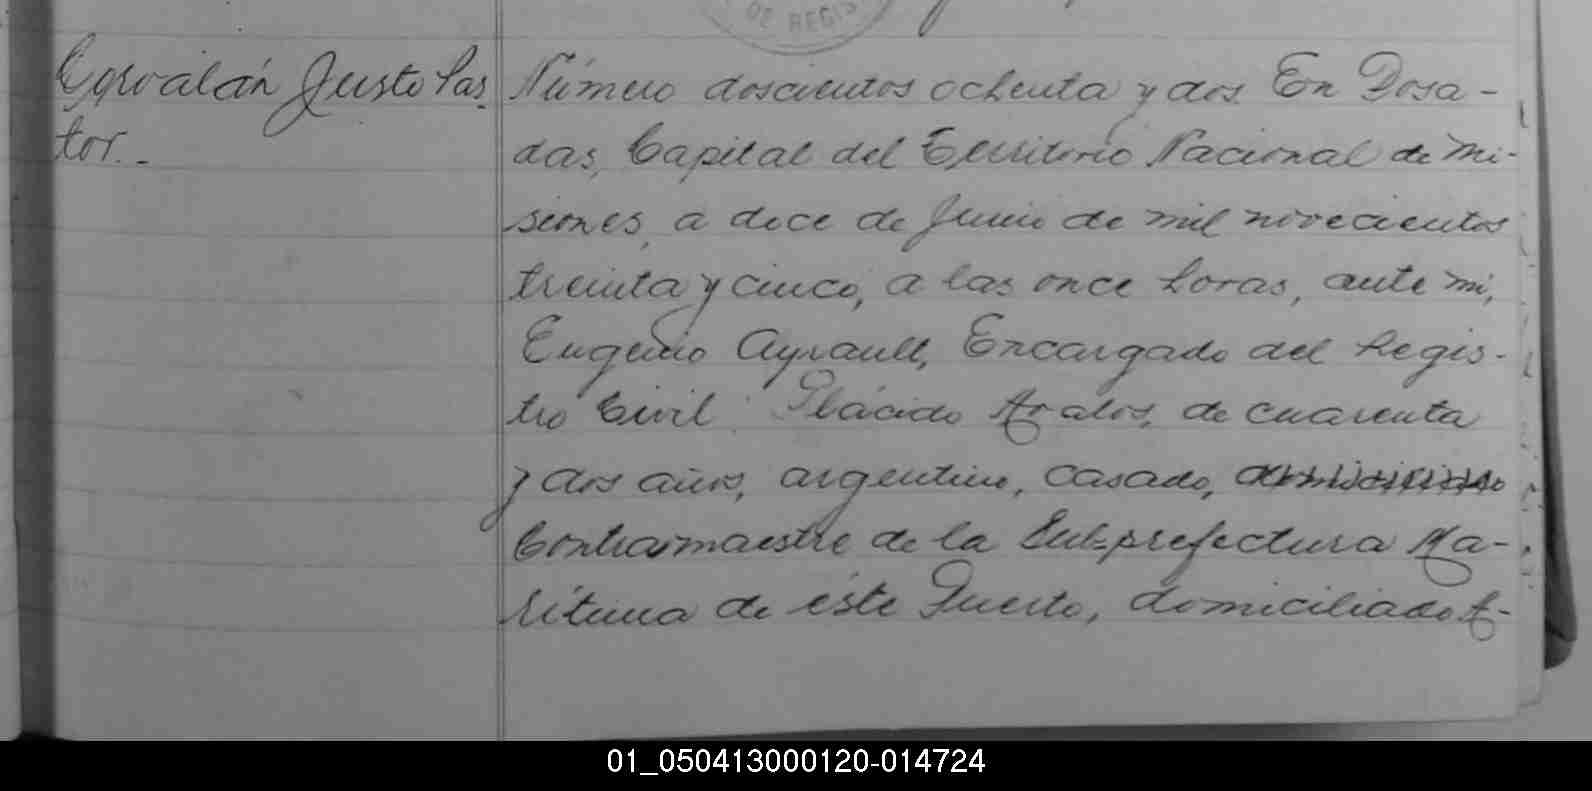 DE REGIS
Corvalán Justo Pas-
tor.-
Número doscientos ochenta y dos En Posa-
das, Capital del Territorio Nacional de Mi-
siones, a doce de Junio de mil novecientos
treinta y cinco, a las once horas, ante mi,
Eugenio Ayrault, Encargado del Regis-
tro Civil Plácido Avalos, de cuarenta
y dos años, argentino, casado,
Contramaestre de la Sub-prefectura Ma-
ritima de éste Puerto, domiciliado A-
01_050413000120-014724